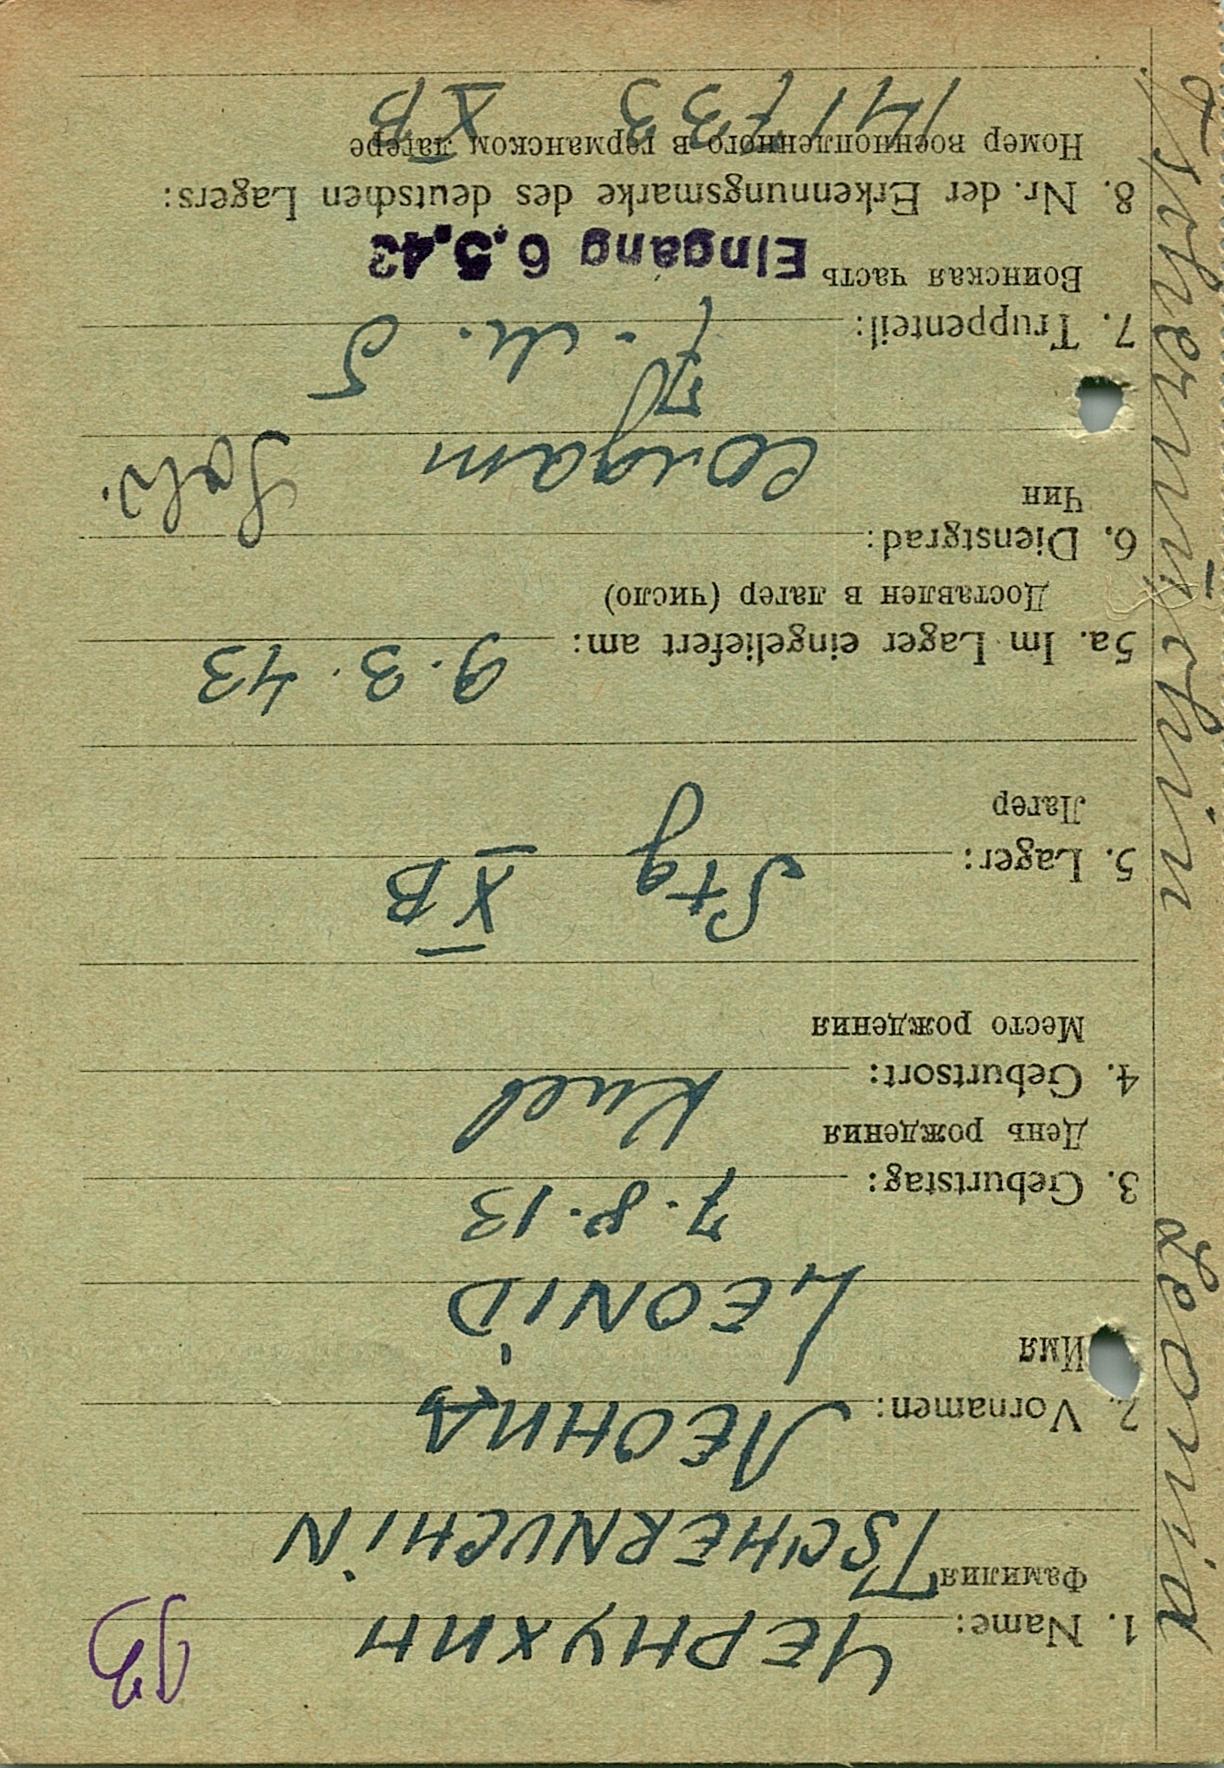 ЧЕРНУХИН
1. Name:
Фамилия TSCHERNUCHIN
2. Vornamen: ЛЕОНИД
Имя
LEONID
7. 8. 13
3. Geburtstag:
День рождения
Киев
4. Geburtsort:
Место рождения
Stg XB
5. Lager:
Лагер
5a. Im Lager eingeliefert am: 9. 3. 43
Доставлен в лагер (число)
6. Dienstgrad:
Чин
солдат Sold.
7. Truppenteil:
Воинская часть Eingang 6.5.43
8. Nr. der Erkennungsmarke des deutschen Lagers:
Номер военнопленного в германском лагере
141733 XB
Tschernuchin Leonid